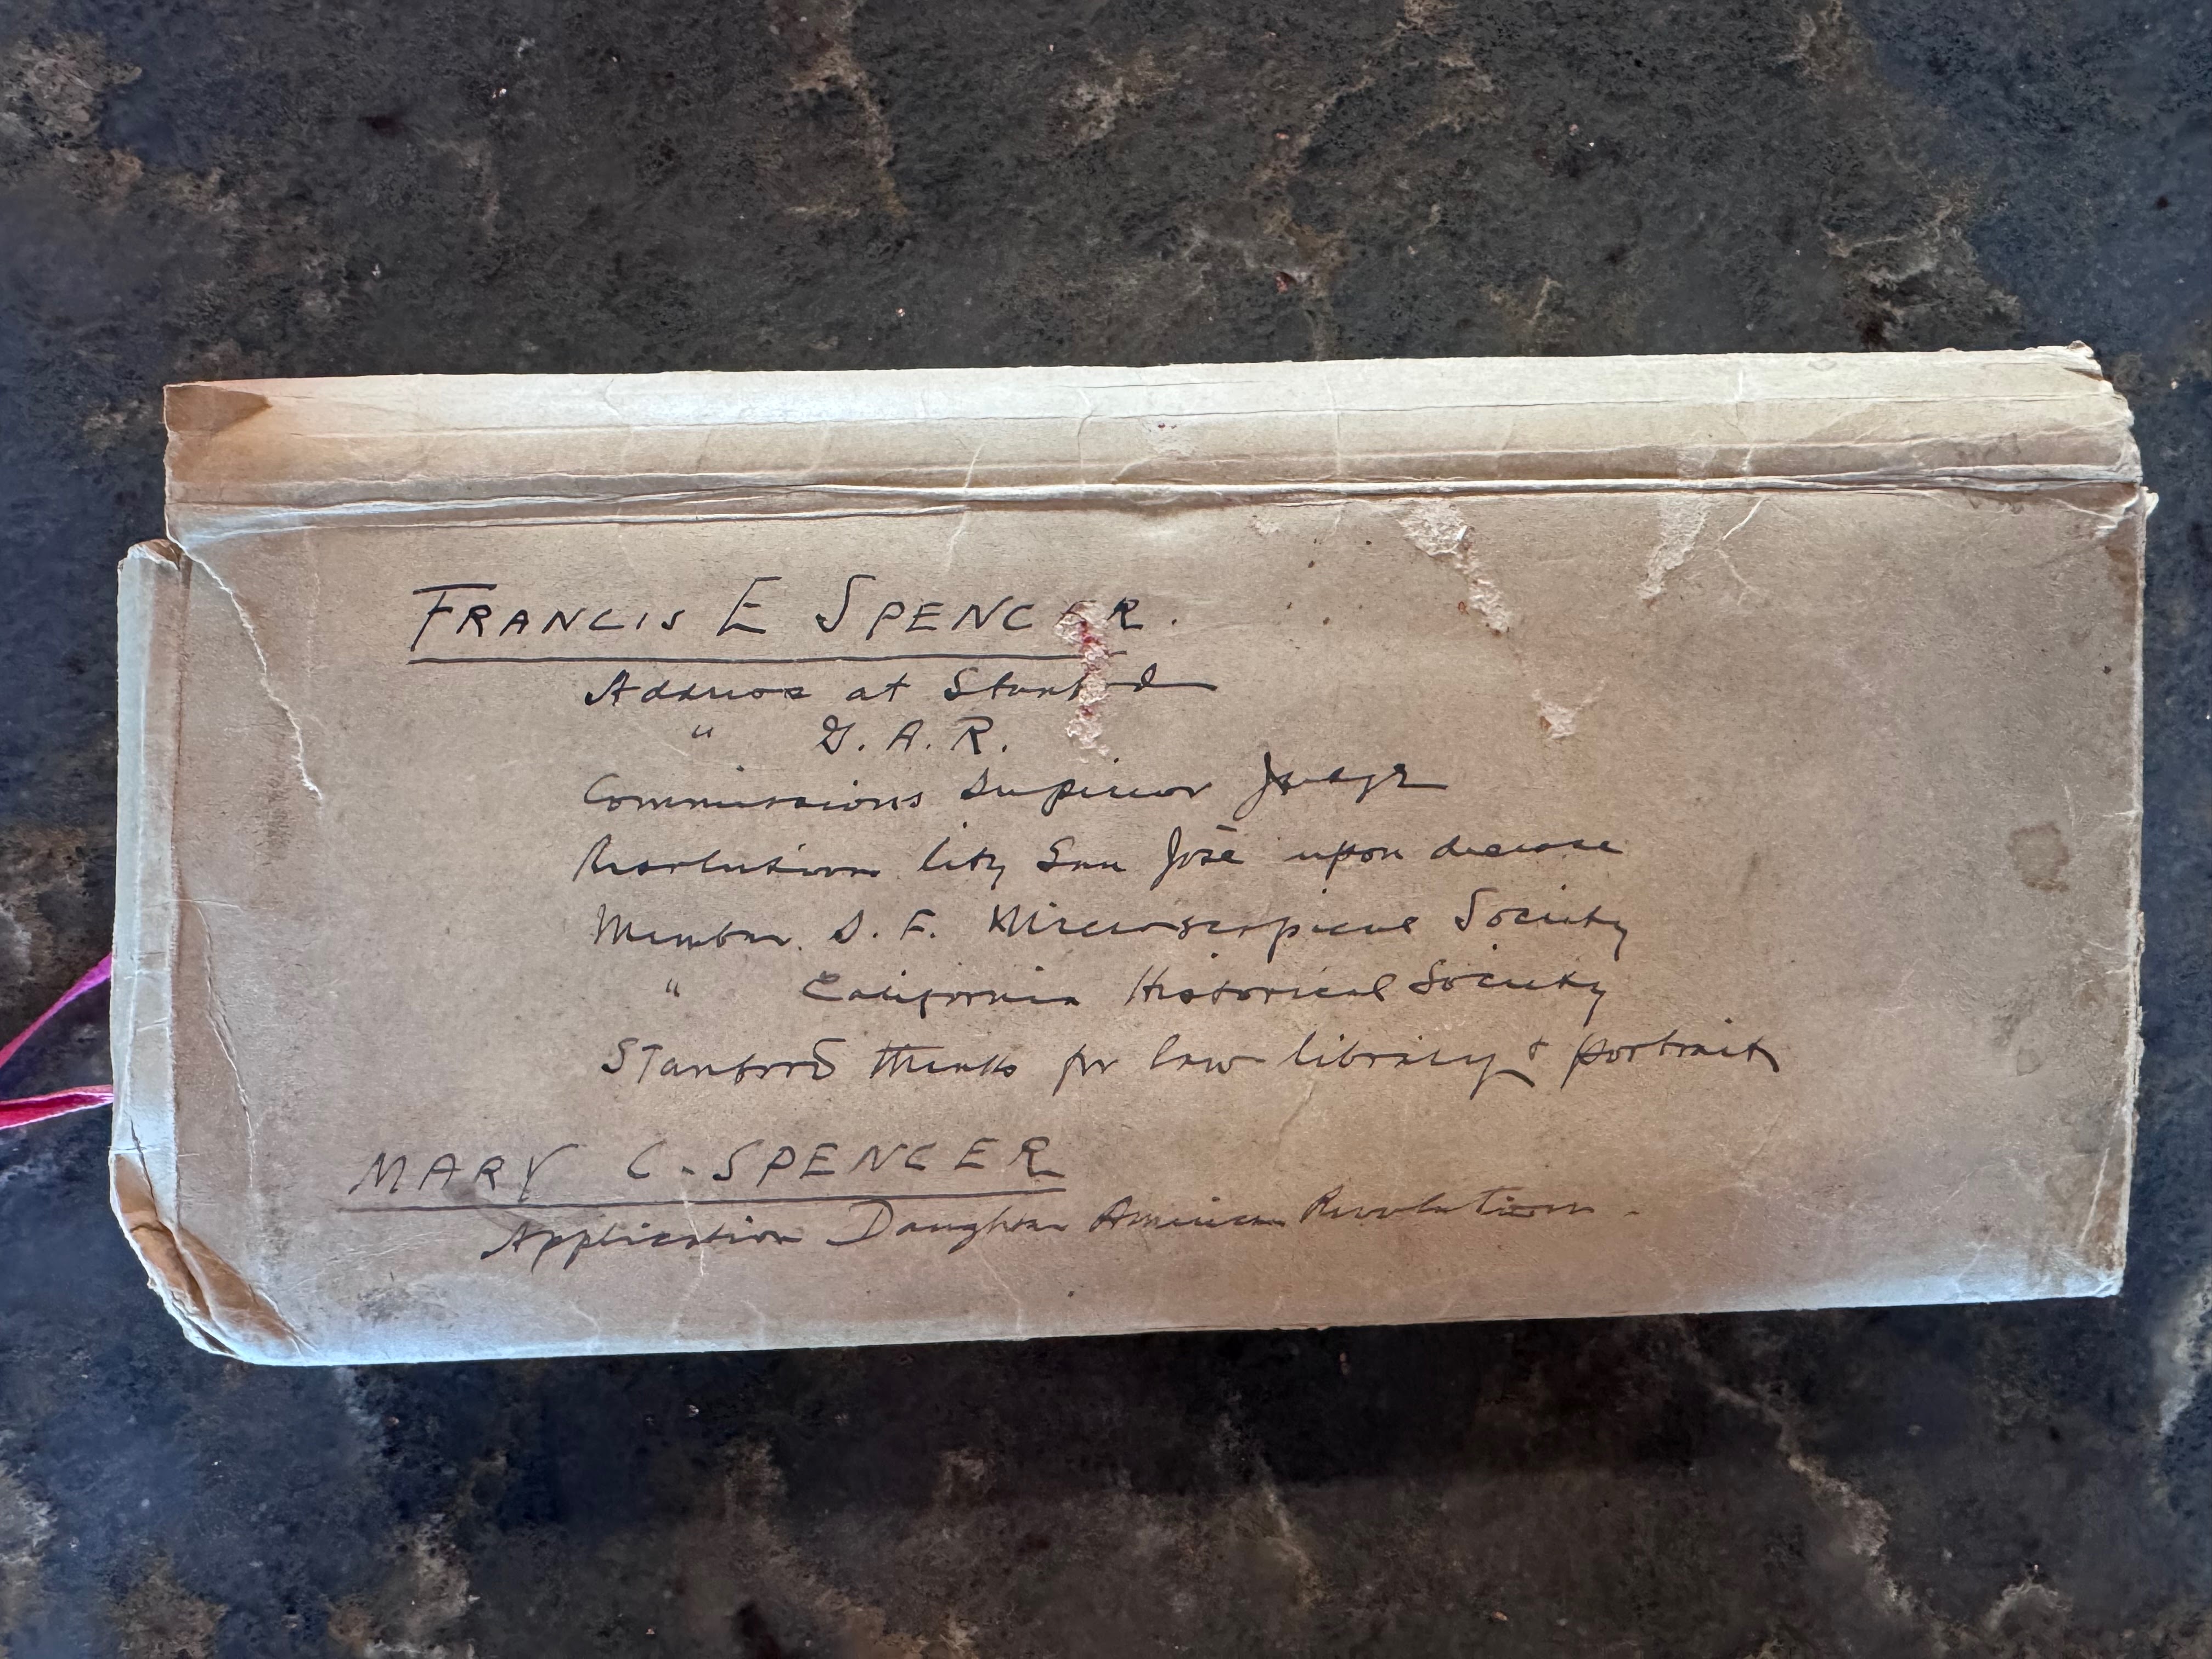 FRANCIS E SPENCER.
Address at Stanford
" G. A. R.
Commissions Superior Judge
Resolutions City San José upon decease
Member S. F. Microscopical Society
" California Historical Society
Stanford thanks for law library & portrait
MARY C. SPENCER
Application Daughter American Revolution.